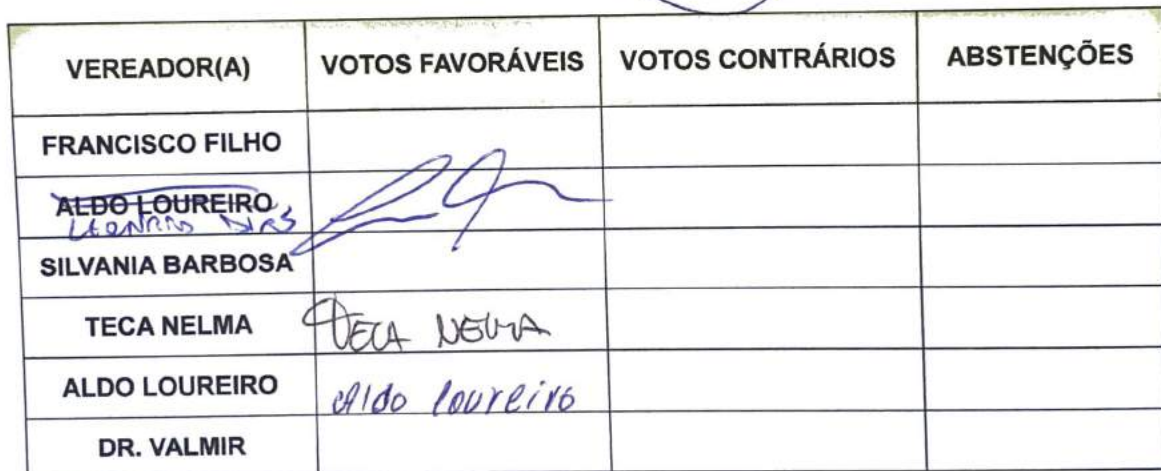 VEREADOR(A) VOTOS FAVORÁVEIS VOTOS CONTRÁRIOS ABSTENÇÕES
FRANCISCO FILHO
ALDO LOUREIRO
LEONARDO DIAS
SILVANIA BARBOSA
TECA NELMA TECA NELMA
ALDO LOUREIRO Aldo loureiro
DR. VALMIR